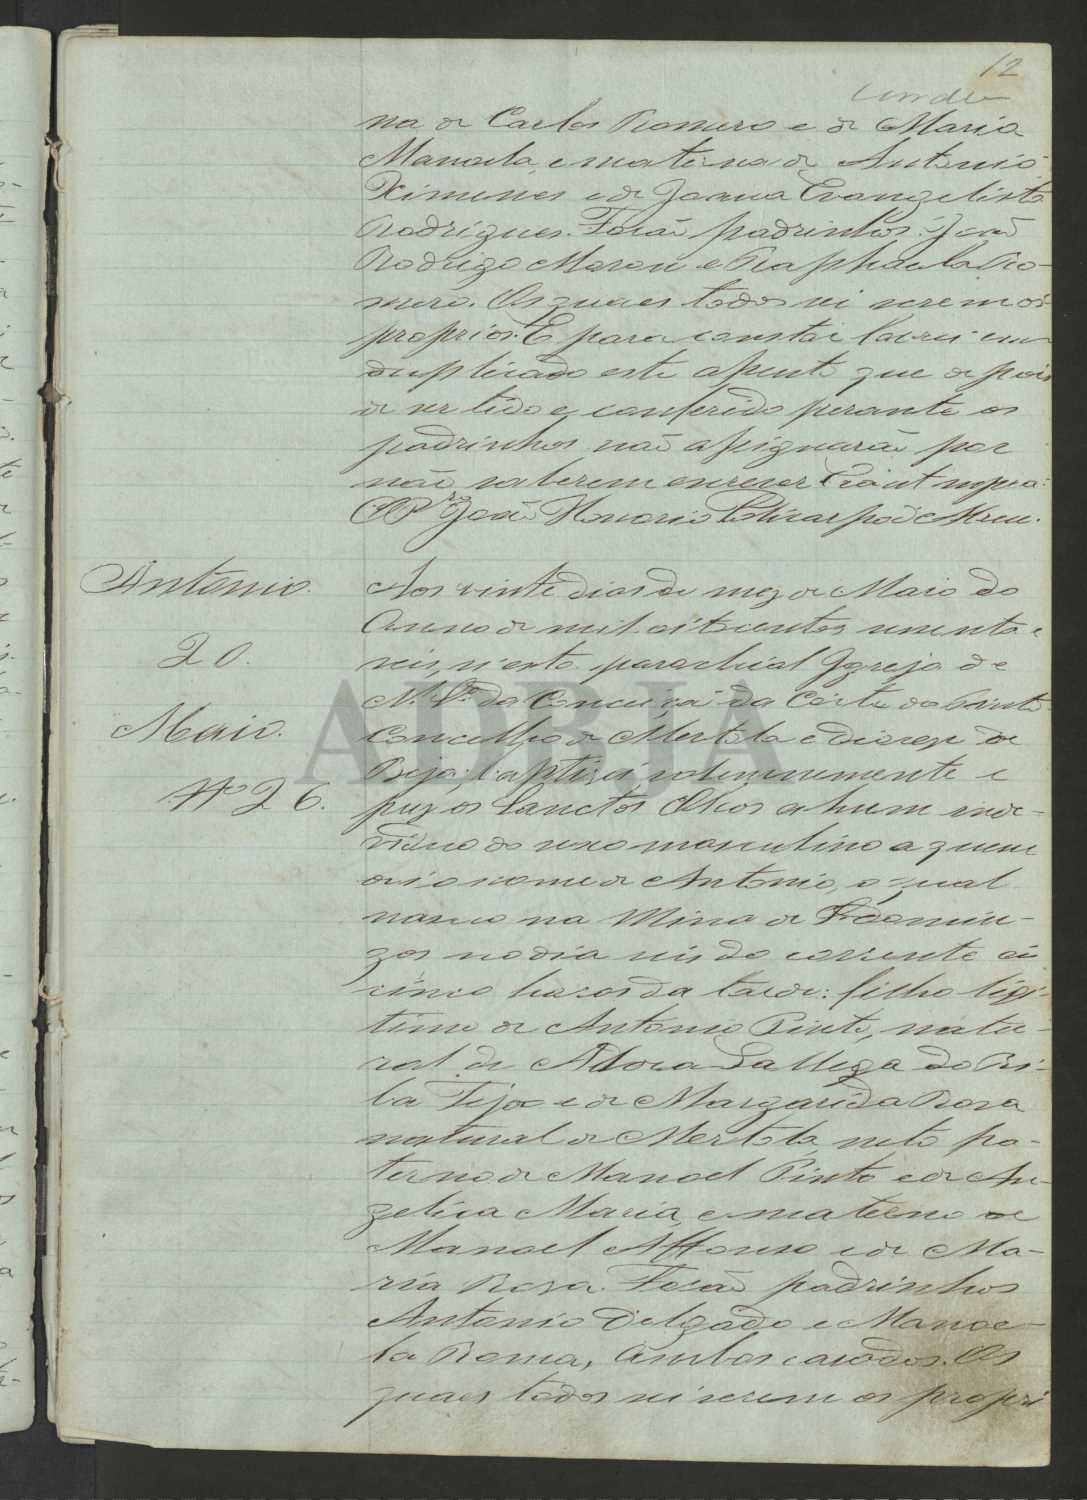 12
na de Carlos Romero e de Maria
Manoela, e materna de Antonio
Ximenes e de Joanna Evangelista
Rodrigues. Forão padrinhos: João
Rodrigo Moron e Raphaela Ro-
mero. Os quaes todos sei serem os
proprios. E para constar lavrei em
duplicado este assento que depois
de ser lido e conferido perante os
padrinhos não assignarão por
não saberem escrever. Era ut supra.
O Pro João Honorio
Antonio.
20.
Maio.
Nº 26.
Aos vinte dias do mez de Maio do
Anno de mil oitocentos sessenta e
seis, n'esta parochial Igreja de
N. Sra. da Conceição da Côrte do Pinto
Concelho de Mertola e Diocese de
Beja, baptizei solemnemente e
puz os Sanctos Oleos a hum indi-
viduo do sexo masculino a quem
dei o nome de Antonio, o qual
nasceo na Mina de S. Domin-
gos no dia seis do corrente ás
cinco horas da tarde: filho ligi-
timo de Antonio Pinto, natu-
ral de Aldea Gallega do Ri-
ba Tejo e de Margarida Rosa
natural de Mertola, neto pa-
terno de Manoel Pinto e de An-
gelica Maria, e materno de
Manoel Affonso e de Ma-
ria Rosa. Forão padrinhos
Antonio Delgado e Manoe-
la Roma, ambos casados. Os
quaes todos sei serem os propri
ADBJA